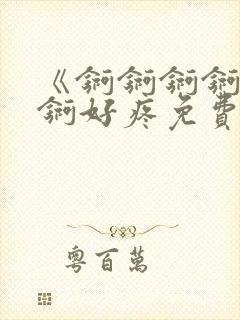 《锕锕锕锕
锕好疼免費
粵百萬